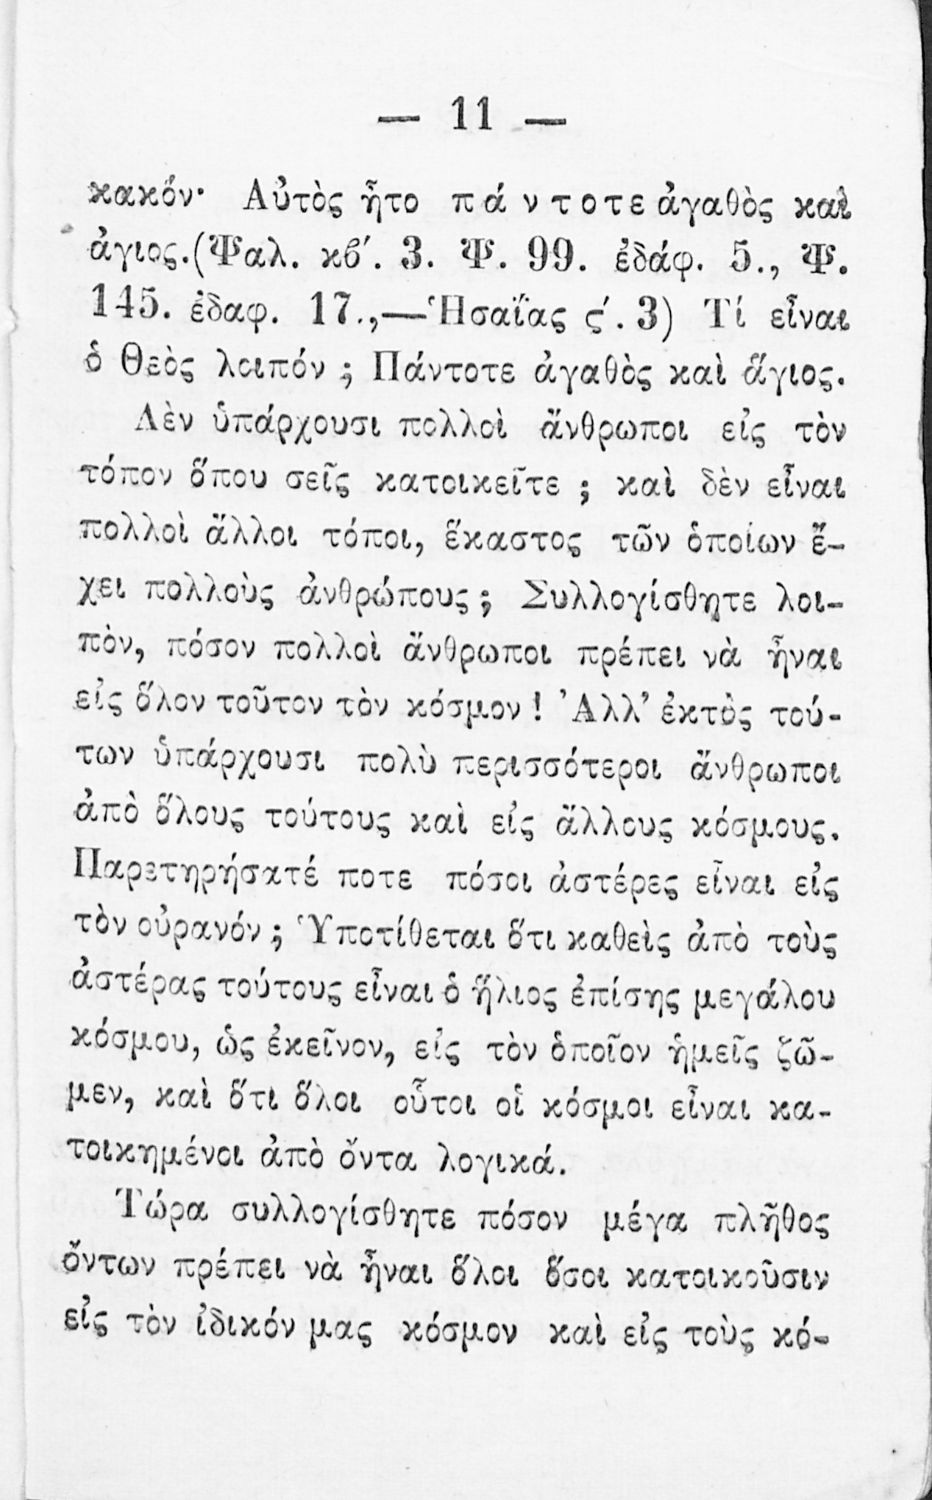 — 11 —
κακόν· Αὐτὸς ἦτο πάντοτε ἀγαθὸς καὶ
ἁγιος. (Ψαλ. κβ΄. 3. Ψ. 99. ἐδάφ. 5., Ψ.
145. ἐδαφ. 17.,—Ἡσαΐας ϛ΄. 3) Τί εἶναι
ὁ Θεὸς λοιπόν ; Πάντοτε ἀγαθὸς καὶ ἅγιος.
Δὲν ὑπάρχουσι πολλοὶ ἄνθρωποι εἰς τὸν
τόπον ὅπου σεῖς κατοικεῖτε ; καὶ δὲν εἶναι
πολλοὶ ἄλλοι τόποι, ἕκαστος τῶν ὁποίων ἔ-
χει πολλοὺς ἀνθρώπους ; Συλλογίσθητε λοι-
πὸν, πόσον πολλοὶ ἄνθρωποι πρέπει νὰ ἦναι
εἰς ὅλον τοῦτον τὸν κόσμον ! Ἀλλ’ ἐκτὸς τού-
των ὑπάρχουσι πολὺ περισσότεροι ἄνθρωποι
ἀπὸ ὅλους τούτους καὶ εἰς ἄλλους κόσμους.
Παρετηρήσατέ ποτε πόσοι ἀστέρες εἶναι εἰς
τὸν οὐρανόν ; Ὑποτίθεται ὅτι καθεὶς ἀπὸ τοὺς
ἀστέρας τούτους εἶναι ὁ ἥλιος ἐπίσης μεγάλου
κόσμου, ὡς ἐκεῖνον, εἰς τὸν ὁποῖον ἡμεῖς ζῶ-
μεν, καὶ ὅτι ὅλοι οὗτοι οἱ κόσμοι εἶναι κα-
τοικημένοι ἀπὸ ὄντα λογικά.
Τώρα συλλογίσθητε πόσον μέγα πλῆθος
ὄντων πρέπει νὰ ἦναι ὅλοι ὅσοι κατοικοῦσιν
εἰς τὸν ἰδικόν μας κόσμον καὶ εἰς τοὺς κό-